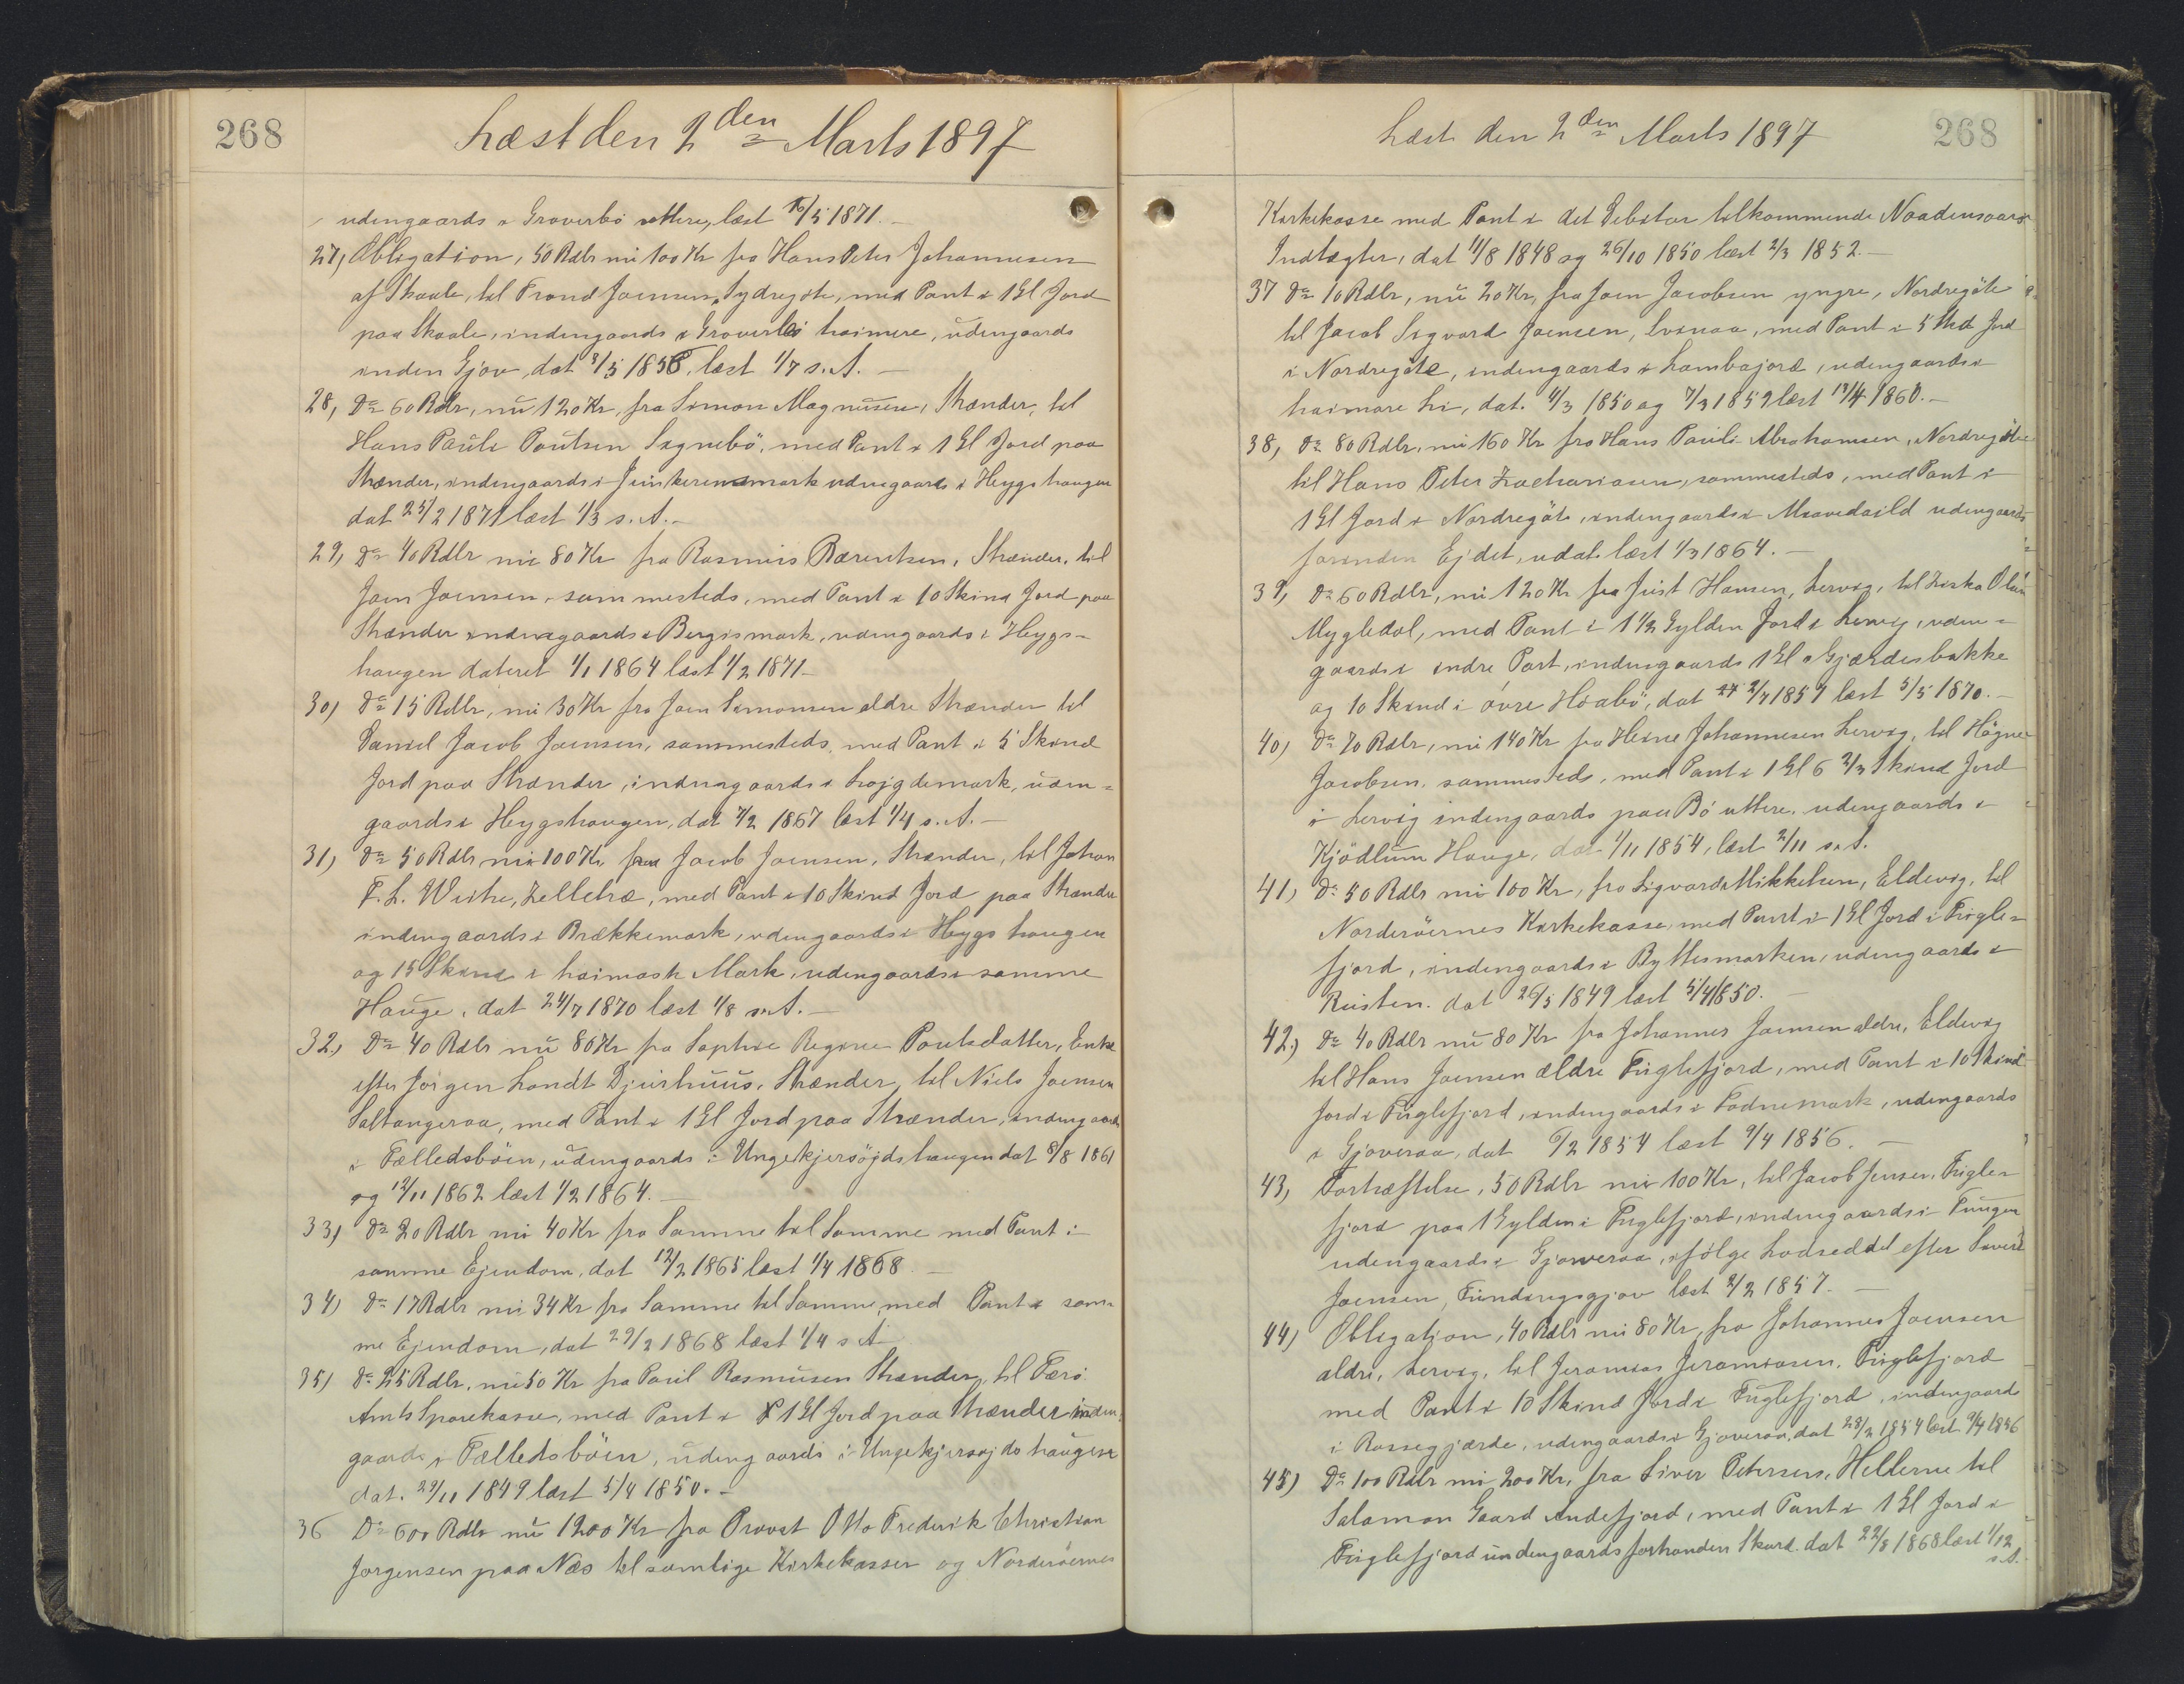 268
Læst den 2den Marts 1897
udengaards i Graverbö uttere, læst 16/5 1871.
27, Obligation, 50 Rdlr nú 100 Kr fra Hans Peter Johannesen
af Skaale, til Trond Joensen, Sydregöte, med Pant i 1 Gl Jord
paa Skaale, indengaards i Graverbö haimere, udengaards
inden Gjov, dat 3/5 1856, læst 1/7 s. A. —
28, Do 60 Rdlr, nú 120 Kr, fra Simon Magnusen, Strænder, til
Hans Pauli Poulsen Signebö, med Pant i 1 Gl Jord paa
Strænder, indengaards i Junkerensmark udengaards i Heygshaugen
dat 25/2 1871 læst 1/3 s. A. —
29, Do 40 Rdlr nú 80 Kr fra Rasmus Bærentsen, Strænder, til
Joen Joensen, sammesteds, med Pant i 10 Skind Jord paa
Strænder indengaards i Bergismark, udengaards i Heygs-
haugen dateret 1/1 1864 læst 1/2 1871 —
30) Do 15 Rdlr, nú 30 Kr fra Joen Simonsen ældre Strænder til
Daniel Jacob Joensen, sammesteds, med Pant i 5 Skind
Jord paa Strænder, indengaards i Lojgdemark, uden-
gaards i Heygshaugen, dat 7/2 1867 læst 1/4 s. A. —
31) Do 50 Rdlr nú 100 Kr fra Jacob Joensen, Strænder, til Johan
F. L. Weihe, Zelletræ, med Pant i 10 Skind Jord paa Strænder
indengaards i Brækkemark, udengaards i Heygshaugen
og 15 Skind i haimask Mark, udengaards i samme
Hauge, dat 24/7 1870 læst 1/8 s. A. —
32.) Do 40 Rdlr nú 80 Kr fra Sophie Regine Poulsdatter, Enke
efter Jörgen Londt Djurhuus, Strænder, til Niels Joensen
Saltangeraa, med Pant i 1 Gl Jord paa Strænder, indengaards
i Fælledsböen, udengaards i Ungekjersöjdshaugen dat 8/8 1861
og 12/11 1862 læst 1/2 1864. —
33) Do 20 Rdlr nú 40 Kr fra Samme til Samme med Pant i
samme Ejendom, dat 12/2 1865 læst 1/4 1868 —
34) Do 17 Rdlr nú 34 Kr fra Samme til Samme, med Pant i sam-
me Ejendom, dat 29/2 1868 læst 1/4 s A
35) Do 25 Rdlr, nú 50 Kr fra Poul Rasmusen Strænder, til Færö
Amts Sparekasse, med Pant i 1 Gl Jord paa Strænder inden-
gaards i Fælledsböen, udengaards i Ungekjersøjdshaugen
dat. 29/11 1849 læst 5/4 1850. —
36 Do 600 Rdlr nú 1200 Kr fra Provst Otto Frederik Christian
Jorgensen paa Næs til samtlige Kirkekasser og Norderöernes
Læst den 2den Marts 1897
268
Kirkekasse med Pant i det Debitor tilkommende Naadensaars
Indtægter, dat 11/8 1848 og 26/10 1850 læst 2/3 1852. —
37 Do 10 Rdlr, nú 20 Kr, fra Joen Jacobsen yngre, Nordregöte
til Jacob Sigvard Joensen, Svinaa, med Pant i 5 Skd Jord
i Nordregöte, indengaards i Lambajord, udengaards i
haimare Li, dat. 11/3 1850 og 7/3 1859 læst 19/4 1860. —
38, Do 80 Rdlr, nú 160 Kr fra Hans Pauli Abrahamsen, Nordregöte
til Hans Peter Zachariasen, sammesteds, med Pant i
1 Gl Jord i Nordregöte, indengaards i udengaards
forinden Ejdet, udat. læst 1/3 1864. —
39, Do 60 Rdlr, nú 120 Kr fra Just Hansen, Lervig, til Ziska
Mygledal, med Pant i 1 1/2 Gylden Jord i Lervig, uden-
gaards i indre Part, indengaards 1 Gl i Gjærdesbakke
og 10 Skind i övre Höabö, dat 2/7 1857 læst 5/5 1870. —
40) Do 70 Rdlr, nú 140 Kr fra Heine Johannesen Lervig, til Högne
Jacobsen, sammesteds, med Pant i 1 Gl 6 2/3 Skind Jord
i Lervig indengaards paa Bö uttere, udengaards i
Kjödlum Hauge, dat 1/11 1854, læst 2/11 s. A.
41) Do 50 Rdlr nú 100 Kr, fra Sigvard Mikkelsen, Eldevig, til
Norderöernes Kirkekasse, med Pant i 1 Gl Jord i Fugle-
fjord, indengaards i Byttesmarken, udengaards i
Rusten. dat 26/5 1849 læst 5/4 1850. —
42.) Do 40 Rdlr nú 80 Kr fra Johannes Joensen ældre, Eldevig
til Hans Joensen ældre Fuglefjord, med Pant i 10 Skind
Jord i Fuglefjord, indengaards i Fodnemark, udengaards
i Gjoveraa, dat 6/2 1854 læst 9/4 1856. —
43, Forhæftelse, 50 Rdlr nú 100 Kr, til Jacob Jensen, Fugle-
fjord paa 1 Gylden i Fuglefjord, indengaards i Tungen
udengaards i Gjoweraa, ifölge Lodseddel efter
Joensen, læst 2/2 1857. —
44) Obligation, 40 Rdlr nú 80 Kr, fra Johannes Joensen
ældre, Lervig, til Jeramias Jeramiasen, Fuglefjord
med Pant i 10 Skind Jord i Fuglefjord, indengaards
i Rossegjærde, udengaards i Gjoveraa, dat 28/2 1854 læst 9/4 1856
45) Do 100 Rdlr nú 200 Kr, fra Siver Petersen, Hellerne til
Salamon Gaard Andefjord, med Pant i 1 Gl Jord i
Fuglefjord undengaards forhanden Skard. dat 22/8 1868 læst 1/12
s. A.